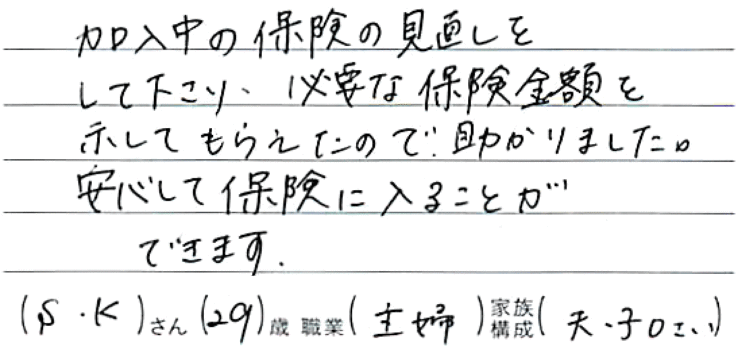 加入中の保険の見直しを
して下さり、必要な保険金額を
示してもらえたので助かりました。
安心して保険に入ることが
できます.
(S.K)さん(29)歳 職業(主婦)家族構成(夫・子0さい)